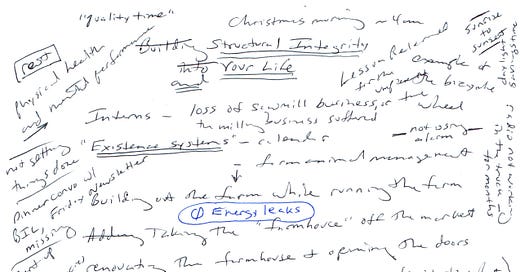 "quality time"
Christmas morning ~ 4am
rest
Building Structural Integrity
into Your Life
and
physical health
and mental performance
sunrise
to
sunset
Lesson Relearned
from example of
the bicycle
wheel
Interns - loss of sawmill business, or the
the milling business suffered
not getting
things done
"Existence systems" - calendar
- not using
alarm
- farm animal management
in the truck
for months
Dinner convo w/
BIL
Friday Newsletter
missing
Building out the farm while running the farm
Energy leaks
Adding Taking the "farmhouse" off the market
renovating the farmhouse & opening the doors